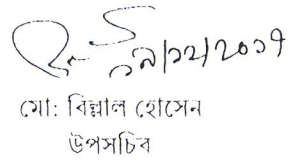 ১৯/১২/২০১৭
মো: বিল্লাল হোসেন
উপসচিব